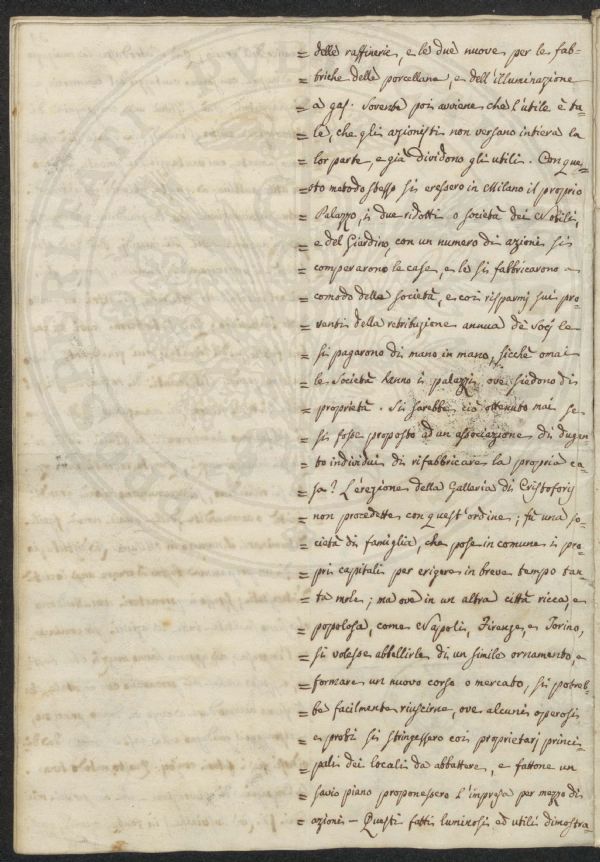 = delle raffinerie, e le due nuove per le fab-
= briche della porcellana, e dell'illuminazione
= a gas. Sovente poi avviene che l'utile è ta-
= le, che gli azionisti non versano intiera la
= lor parte, e già dividono gli utili. Con que-
= sto metodo stesso si eressero in Milano il proprio
= Palazzo, i due ridotti o società dei Nobili,
= e del Giardino, con un numero di azioni si
= comperarono le case, e le si fabbricarono a
= comodo della società, e coi risparmj sui pro-
= venti della retribuzione annua de' Socj le
= si pagarono di mano in mano, sicchè omai
= le Società hanno i palazzi, ove siedono di
= proprietà. Si sarebbe ciò ottenuto mai se
= si fosse proposto ad un associazione di dugen
= to individui di rifabbricare la propria ca-
= sa? L'erezione della Galleria di Cristoforis
= non procedette con quest'ordine; fù una so-
= cietà di famiglia, che pose in comune i pro-
= pri capitali per erigere in breve tempo tan-
= ta mole; ma ove in un altra città ricca, e
= popolosa, come Napoli, Firenze, e Torino,
= si volesse abbellirla di un simile ornamento, e
= formare un nuovo corso o mercato, si potreb-
= be facilmente riuscirne, ove alcuni operosi
= e probi si stringessero coi proprietarj princi-
= pali dei locali da abbattere, e fattone un
= savio piano proponessero l'impresa per mezzo di
= azioni — Questi fatti luminosi ed utili dimostra